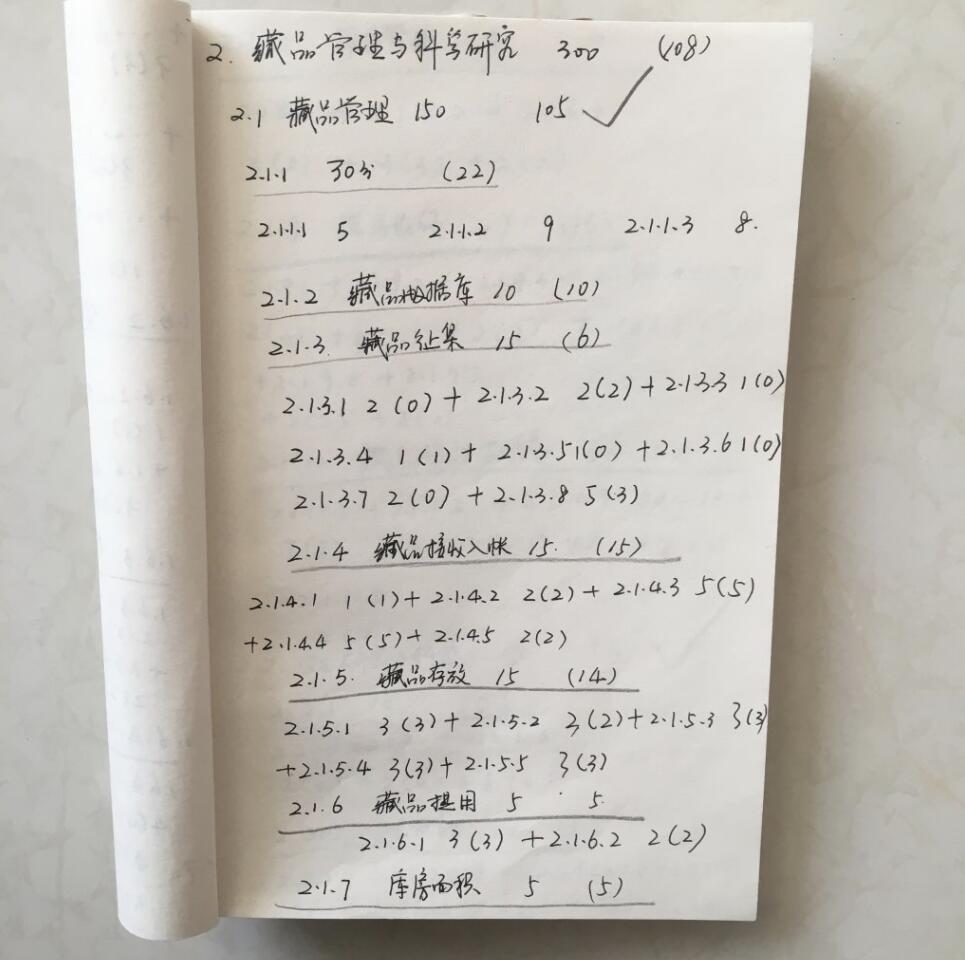 2. 藏品管理与科学研究 300 (108)
2.1 藏品管理 150 105 ✓
2.1.1 30分 (22)
2.1.1.1 5 2.1.1.2 9 2.1.1.3 8.
2.1.2 藏品数据库 10 (10)
2.1.3. 藏品征集 15 (6)
2.1.3.1 2 (0) + 2.1.3.2 2(2) + 2.1.3.3 1(0)
2.1.3.4 1(1) + 2.1.3.5 1(0) + 2.1.3.6 1(0)
2.1.3.7 2(0) + 2.1.3.8 5(3)
2.1.4 藏品接收入帐 15. (15)
2.1.4.1 1(1) + 2.1.4.2 2(2) + 2.1.4.3 5(5)
+2.1.4.4 5(5) + 2.1.4.5 2(2)
2.1.5. 藏品存放 15 (14)
2.1.5.1 3(3) + 2.1.5.2 3(2) + 2.1.5.3 3(3)
+2.1.5.4 3(3) + 2.1.5.5 3(3)
2.1.6 藏品提用 5 5.
2.1.6.1 3(3) + 2.1.6.2 2(2)
2.1.7 库房面积 5 (5)